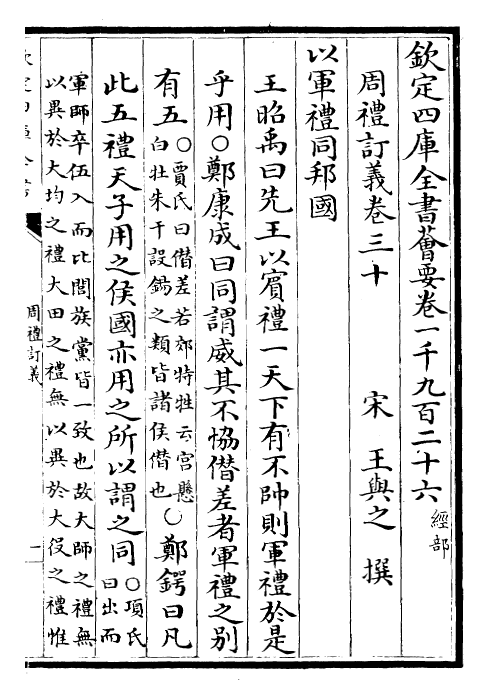 欽定四庫全書薈要卷一千九百二十六經部
周禮訂義卷三十
宋 王與之 撰
以軍禮同邦國
王昭禹曰先王以賓禮一天下有不帥則軍禮於是
乎用○鄭康成曰同謂威其不恊僭差者軍禮之别
有五○賈氏曰僭差若郊特牲云宫懸
白牡朱干設錫之類皆諸侯僭也○鄭鍔曰凡
此五禮天子用之侯國亦用之所以謂之同○項氏
曰出而
軍師卒伍入而比閭族黨皆一致也故大師之禮無
以異於大均之禮大田之禮無以異於大役之禮惟
周禮訂義
一